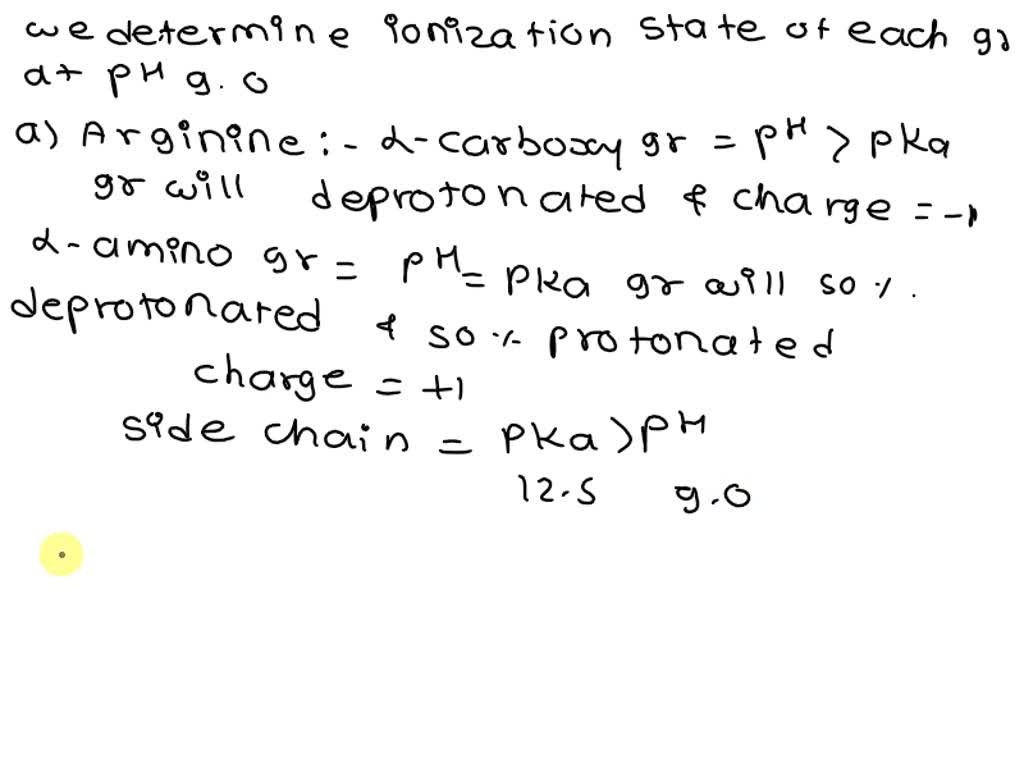 we determine ionization state of each gr
at pH 9.0
a) Arginine :- α-carboxy gr = pH > pka
gr will deprotonated & charge = -1
α-amino gr = pH = pka gr will 50 %.
deprotonated & 50 % protonated
charge = +1
side chain = pka > pH
12.5 9.0